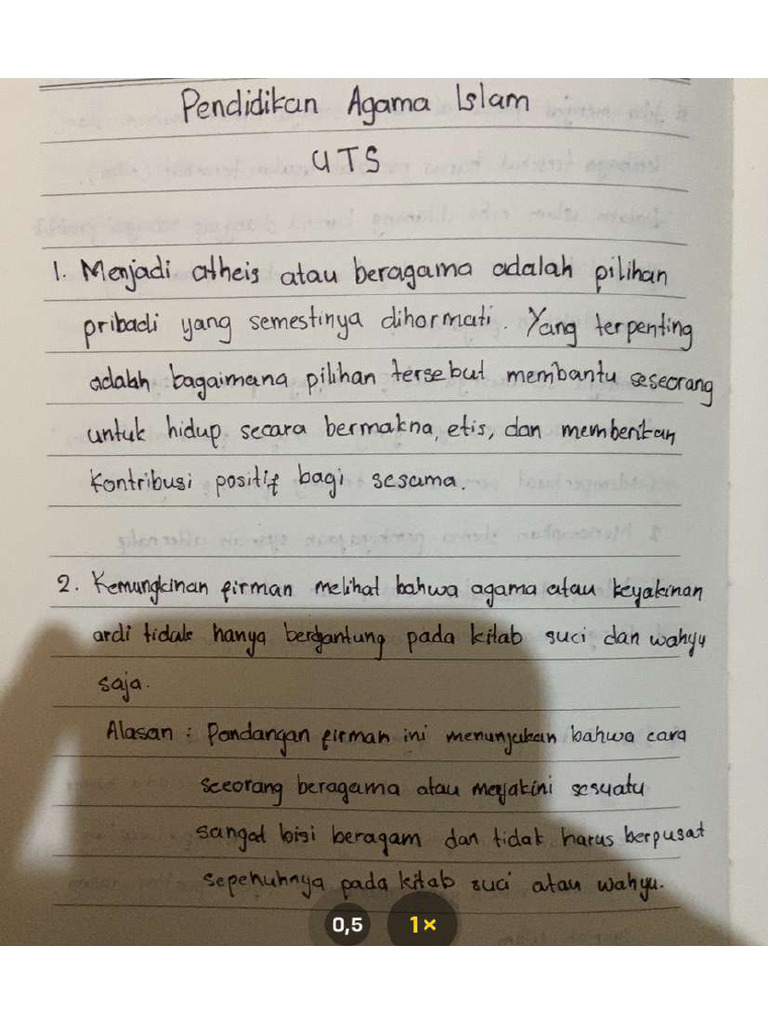 Pendidikan Agama Islam
UTS
1. Menjadi atheis atau beragama adalah pilihan
pribadi yang semestinya dihormati. Yang terpenting
adalah bagaimana pilihan tersebut membantu seseorang
untuk hidup secara bermakna, etis, dan memberikan
kontribusi positif bagi sesama.
2. Kemungkinan firman melihat bahwa agama atau keyakinan
ardi tidak hanya bergantung pada kitab suci dan wahyu
saja.
Alasan : Pandangan firman ini menunjukan bahwa cara
seeorang beragama atau meyakini sesuatu
sangat bisi beragam dan tidak harus berpusat
sepenuhnya pada kitab suci atau wahyu.
0,5 1×